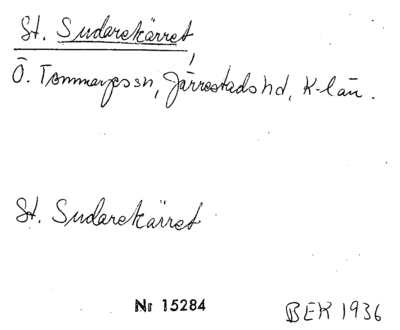 St. Sudarekärret,
Ö. Tommarpssn, Järrestadshd, K-län.
St. Sudarekärret
Nr 15284
BEK 1936